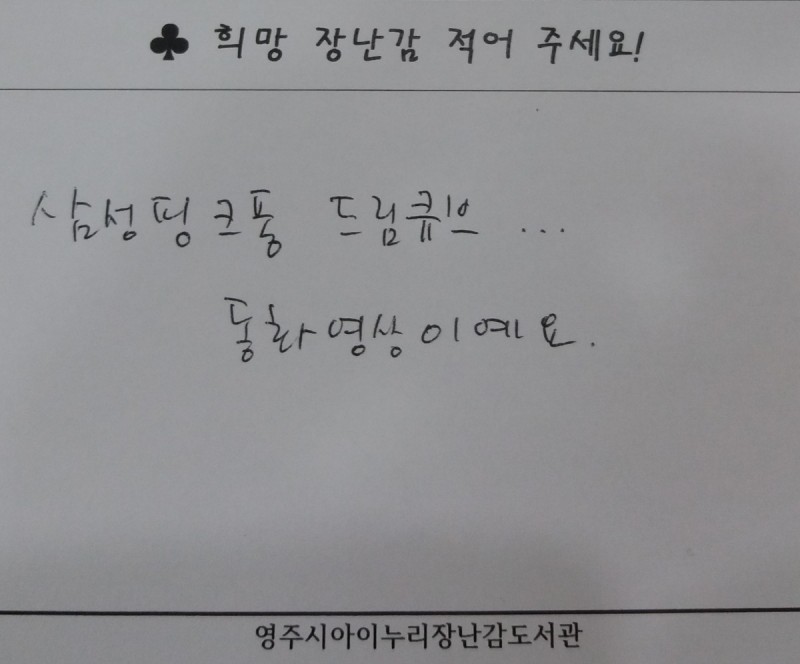 ♣ 희망 장난감 적어 주세요!
삼성핑크퐁 드림큐브 ...
동화영상이예요.
영주시아이누리장난감도서관